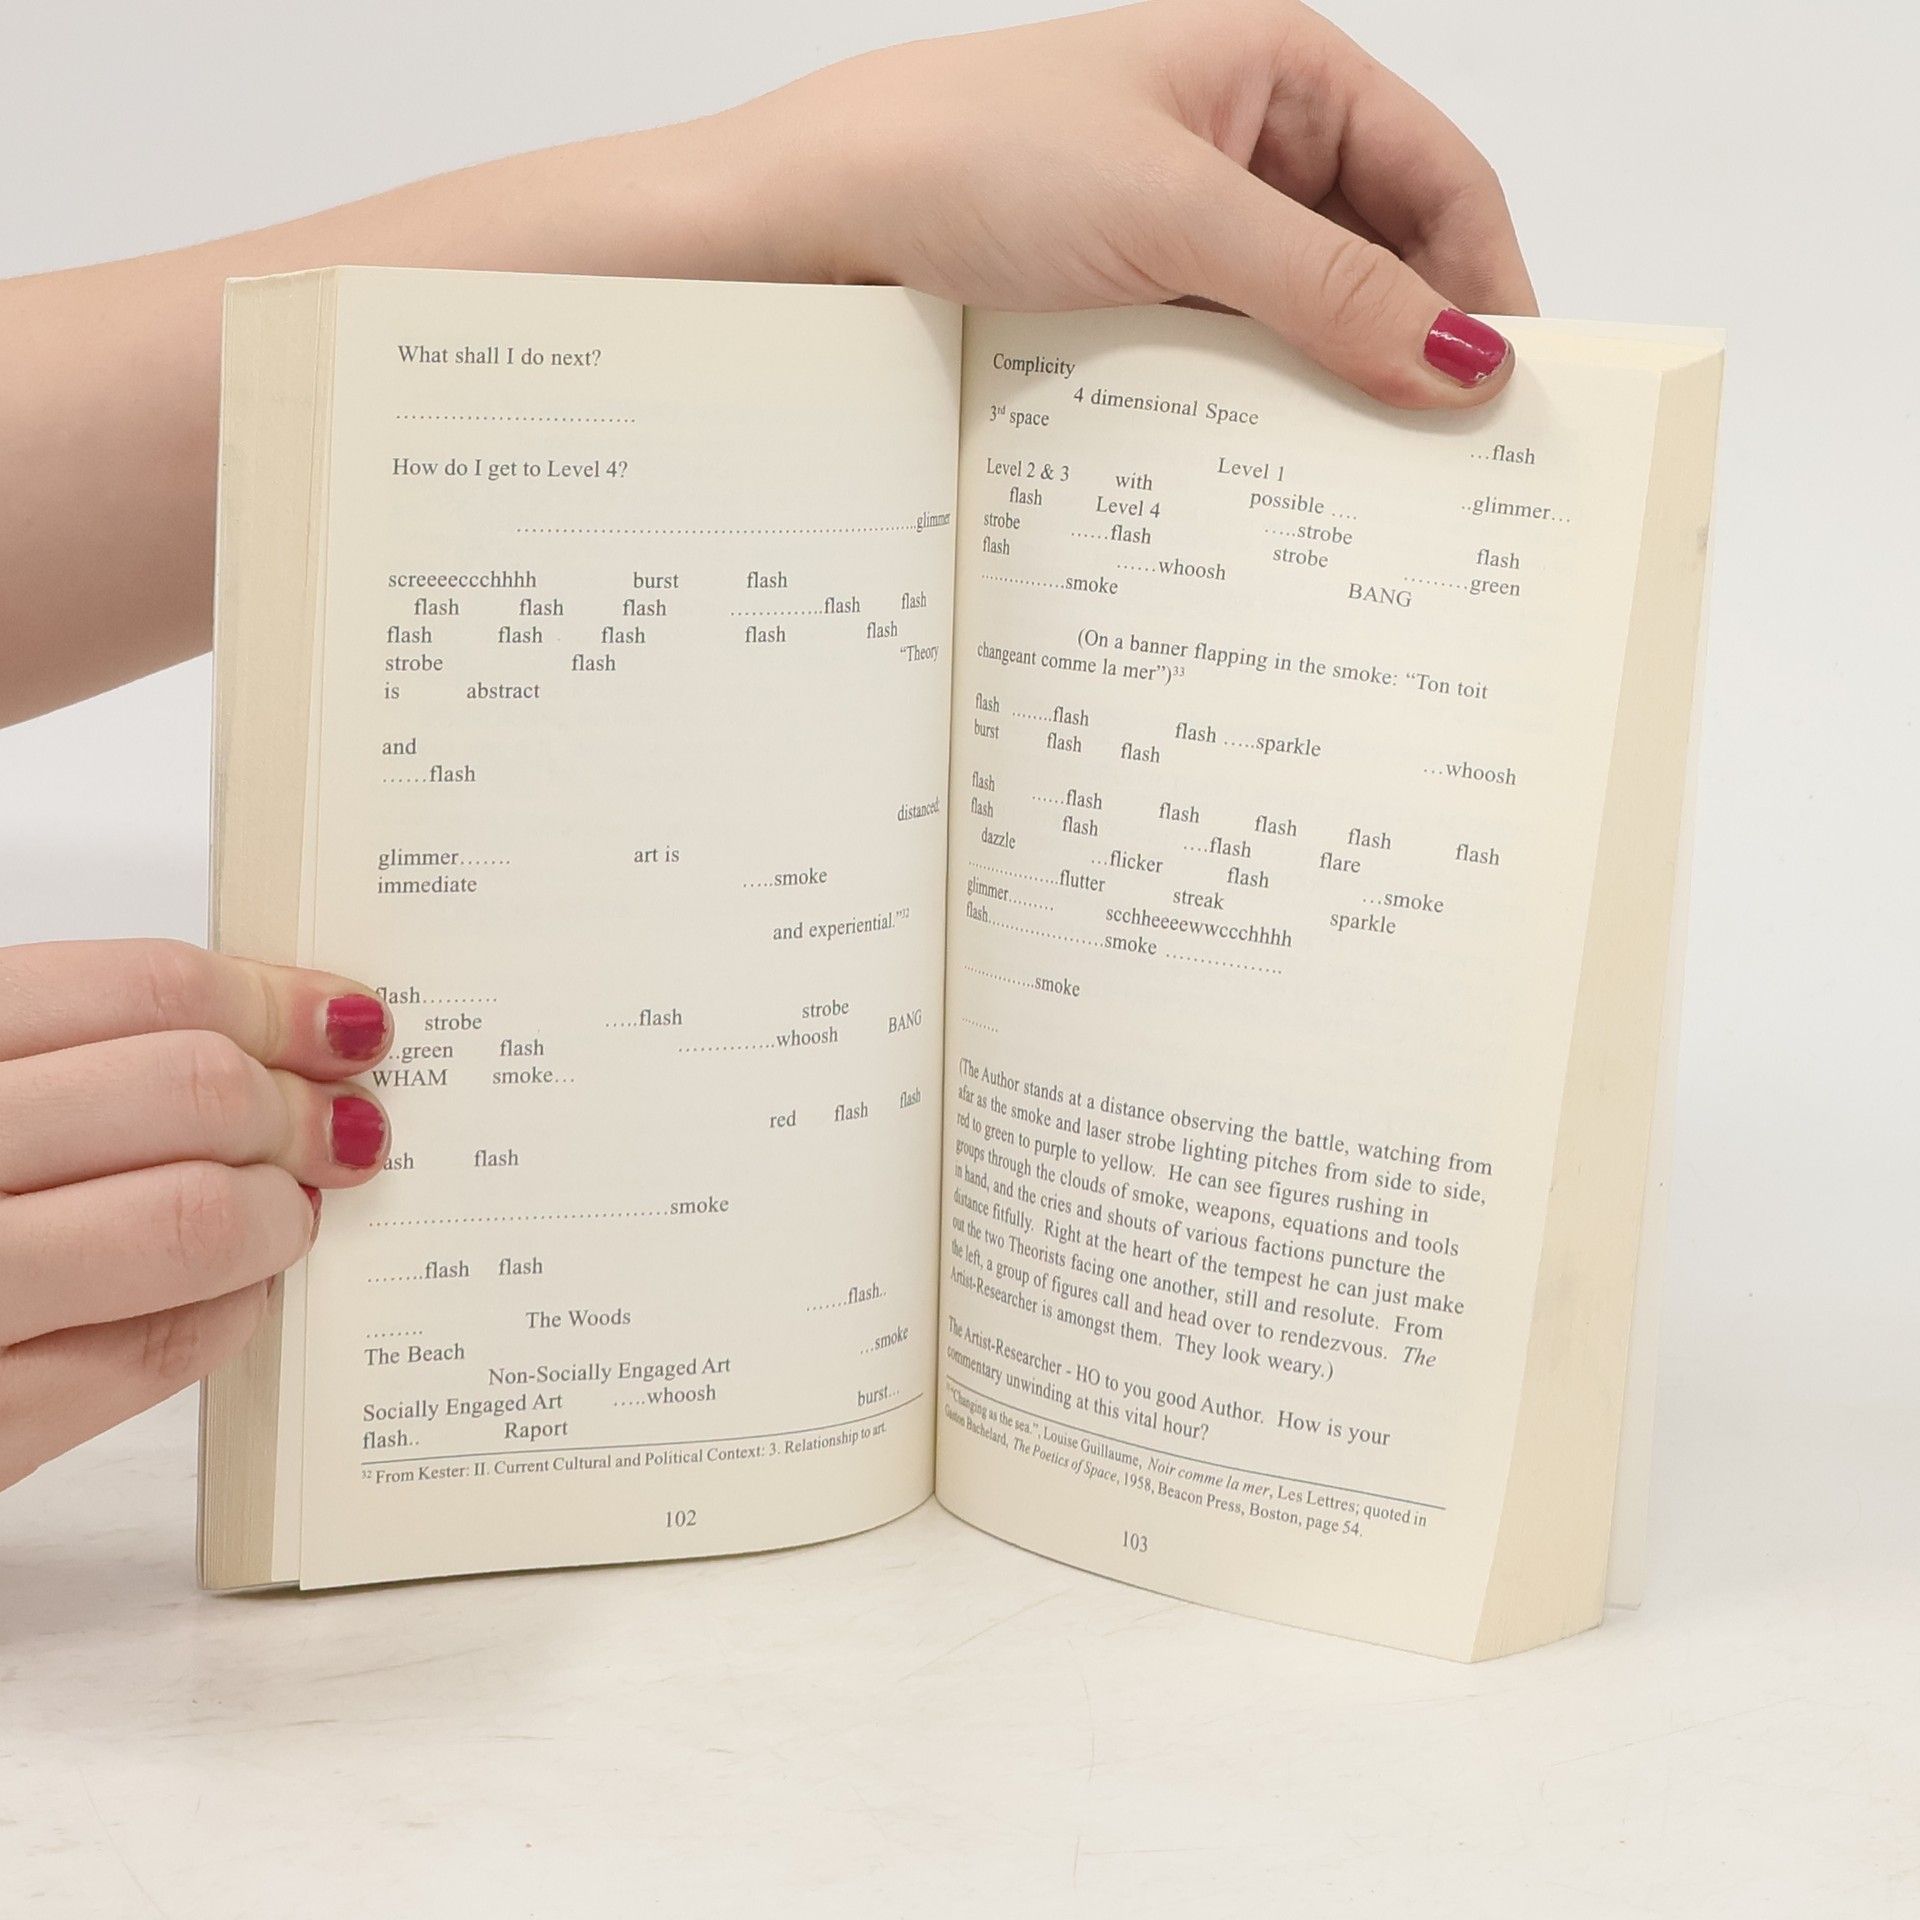 What shall I do next?
..............................
How do I get to Level 4?
....................................................glimmer
screeeeccchhhh burst flash
flash flash flash ..............flash flash
flash flash flash flash flash
strobe flash “Theory
is abstract
and
......flash
distanced;
glimmer....... art is
immediate .....smoke
and experiential.”32
flash..........
strobe .....flash strobe
..green flash ..............whoosh BANG
WHAM smoke…
red flash flash
ash flash
.......................................smoke
........flash flash
.......flash..
........ The Woods
The Beach …smoke
Non-Socially Engaged Art
Socially Engaged Art .....whoosh burst…
flash.. Raport
32 From Kester: II. Current Cultural and Political Context: 3. Relationship to art.
102
Complicity
4 dimensional Space
3rd space
…flash
Level 2 & 3 with Level 1
flash Level 4 possible .... ..glimmer…
strobe ......flash .....strobe
flash strobe flash
......whoosh .........green
................smoke BANG
(On a banner flapping in the smoke: “Ton toit
changeant comme la mer”)33
flash ........flash flash .....sparkle
burst flash flash …whoosh
flash ......flash flash flash flash flash
flash flash ....flash flare
dazzle …flicker flash …smoke
.................flutter streak sparkle
glimmer......... scchheeeewwccchhhh
flash......................smoke .................
..............smoke
..........
(The Author stands at a distance observing the battle, watching from
afar as the smoke and laser strobe lighting pitches from side to side,
red to green to purple to yellow. He can see figures rushing in
groups through the clouds of smoke, weapons, equations and tools
in hand, and the cries and shouts of various factions puncture the
distance fitfully. Right at the heart of the tempest he can just make
out the two Theorists facing one another, still and resolute. From
the left, a group of figures call and head over to rendezvous. The
Artist-Researcher is amongst them. They look weary.)
The Artist-Researcher - HO to you good Author. How is your
commentary unwinding at this vital hour?
33 “Changing as the sea.”, Louise Guillaume, Noir comme la mer, Les Lettres; quoted in
Gaston Bachelard, The Poetics of Space, 1958, Beacon Press, Boston, page 54.
103